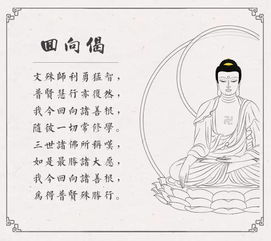 回向偈
文殊師利勇猛智，
普賢慧行亦復然，
我今回向諸善根，
隨彼一切常修學。
三世諸佛所稱嘆，
如是最勝諸大愿，
我今回向諸善根，
為得普賢殊勝行。
卍